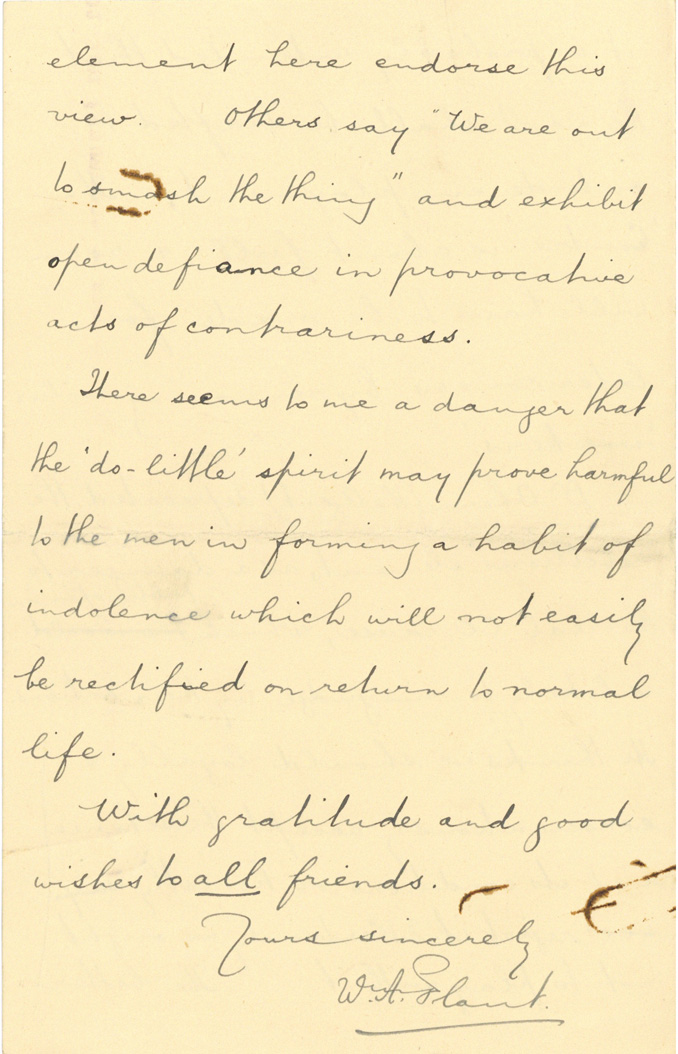 element here endorse this
view. Others say "We are out
to smash the thing" and exhibit
open defiance in provocative
acts of contrariness.
There seems to me a danger that
the 'do-little' spirit may prove harmful
to the men in forming a habit of
indolence which will not easily
be rectified on return to normal
life.
With gratitude and good
wishes to all friends.
Yours sincerely
Wm. A. Plant.